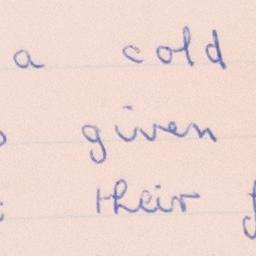 a cold
given
their